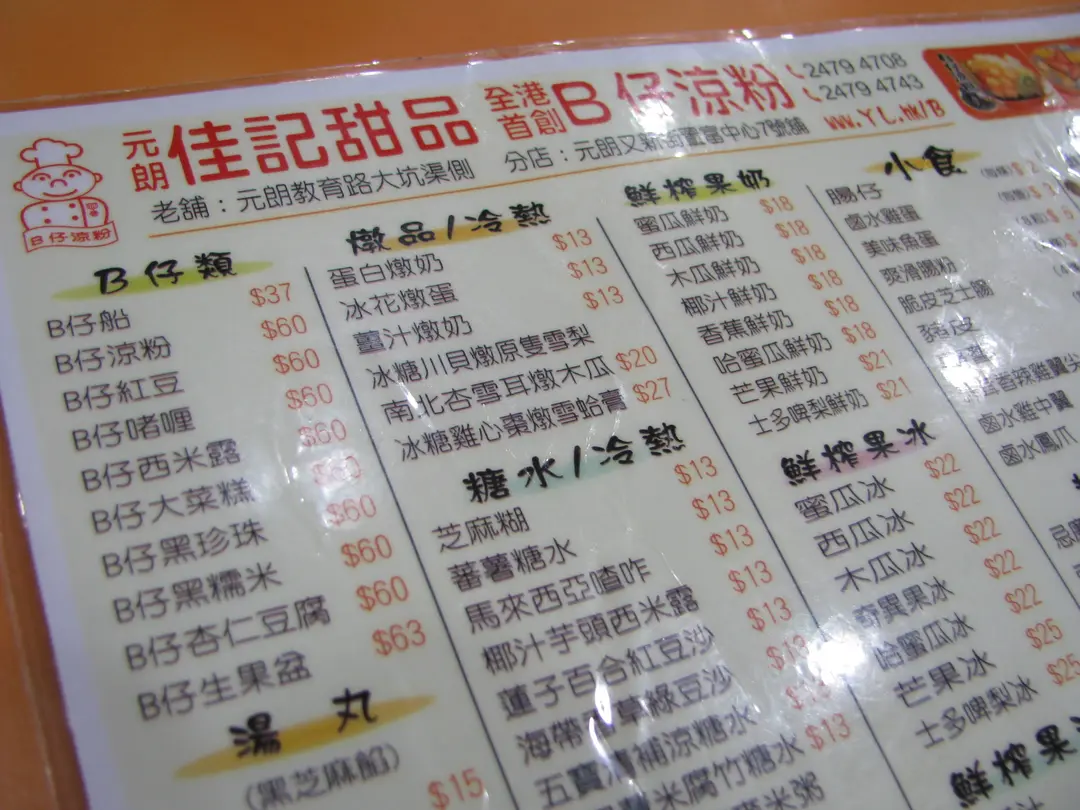 元朗 佳記甜品 全港首創 B仔涼粉 2479 4708
2479 4743
www.YL.hk/B
老舖：元朗教育路大坑渠側 分店：元朗又新街置富中心7號舖
B仔涼粉
B仔類
B仔船 $37
B仔涼粉 $60
B仔紅豆 $60
B仔啫喱 $60
B仔西米露 $60
B仔大菜糕 $60
B仔黑珍珠 $60
B仔黑糯米 $60
B仔杏仁豆腐 $60
B仔生果盆 $63
湯丸
(黑芝麻餡) $15
燉品/冷熱
蛋白燉奶 $13
冰花燉蛋 $13
薑汁燉奶 $13
冰糖川貝燉原隻雪梨
南北杏雪耳燉木瓜 $20
冰糖雞心棗燉雪蛤膏 $27
糖水/冷熱
芝麻糊 $13
蕃薯糖水 $13
馬來西亞喳咋 $13
椰汁芋頭西米露 $13
蓮子百合紅豆沙 $13
海帶 草綠豆沙 $13
五寶清補涼糖水
米腐竹糖水 $13
米粥
鮮榨果奶
蜜瓜鮮奶 $18
西瓜鮮奶 $18
木瓜鮮奶 $18
椰汁鮮奶 $18
香蕉鮮奶 $18
哈蜜瓜鮮奶 $18
芒果鮮奶 $21
士多啤梨鮮奶 $21
鮮榨果冰
蜜瓜冰 $22
西瓜冰 $22
木瓜冰 $22
奇異果冰 $22
哈蜜瓜冰 $22
芒果冰 $25
士多啤梨冰 $25
鮮榨果
小食
腸仔
鹵水雞蛋
美味魚蛋
爽滑腸粉
脆皮芝士腸
豬皮
香辣雞翼尖
鹵水雞中翼
鹵水鳳爪